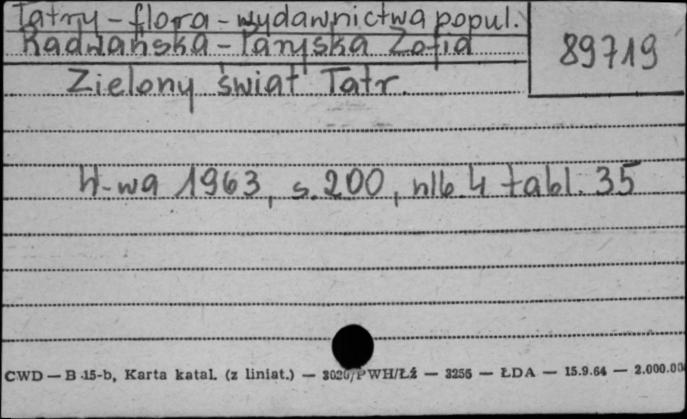 Tatry - flora - wydawnictwa popul.
Radwańska - Paryska Zofia
89719
Zielony świat Tatr.
W-wa 1963, s. 200, nlb. 4 tabl. 35
CWD — B 15-b, Karta katal. (z liniat.) — 3020/PWH/Łź — 3256 — ŁDA — 15.9.64 — 2.000.00